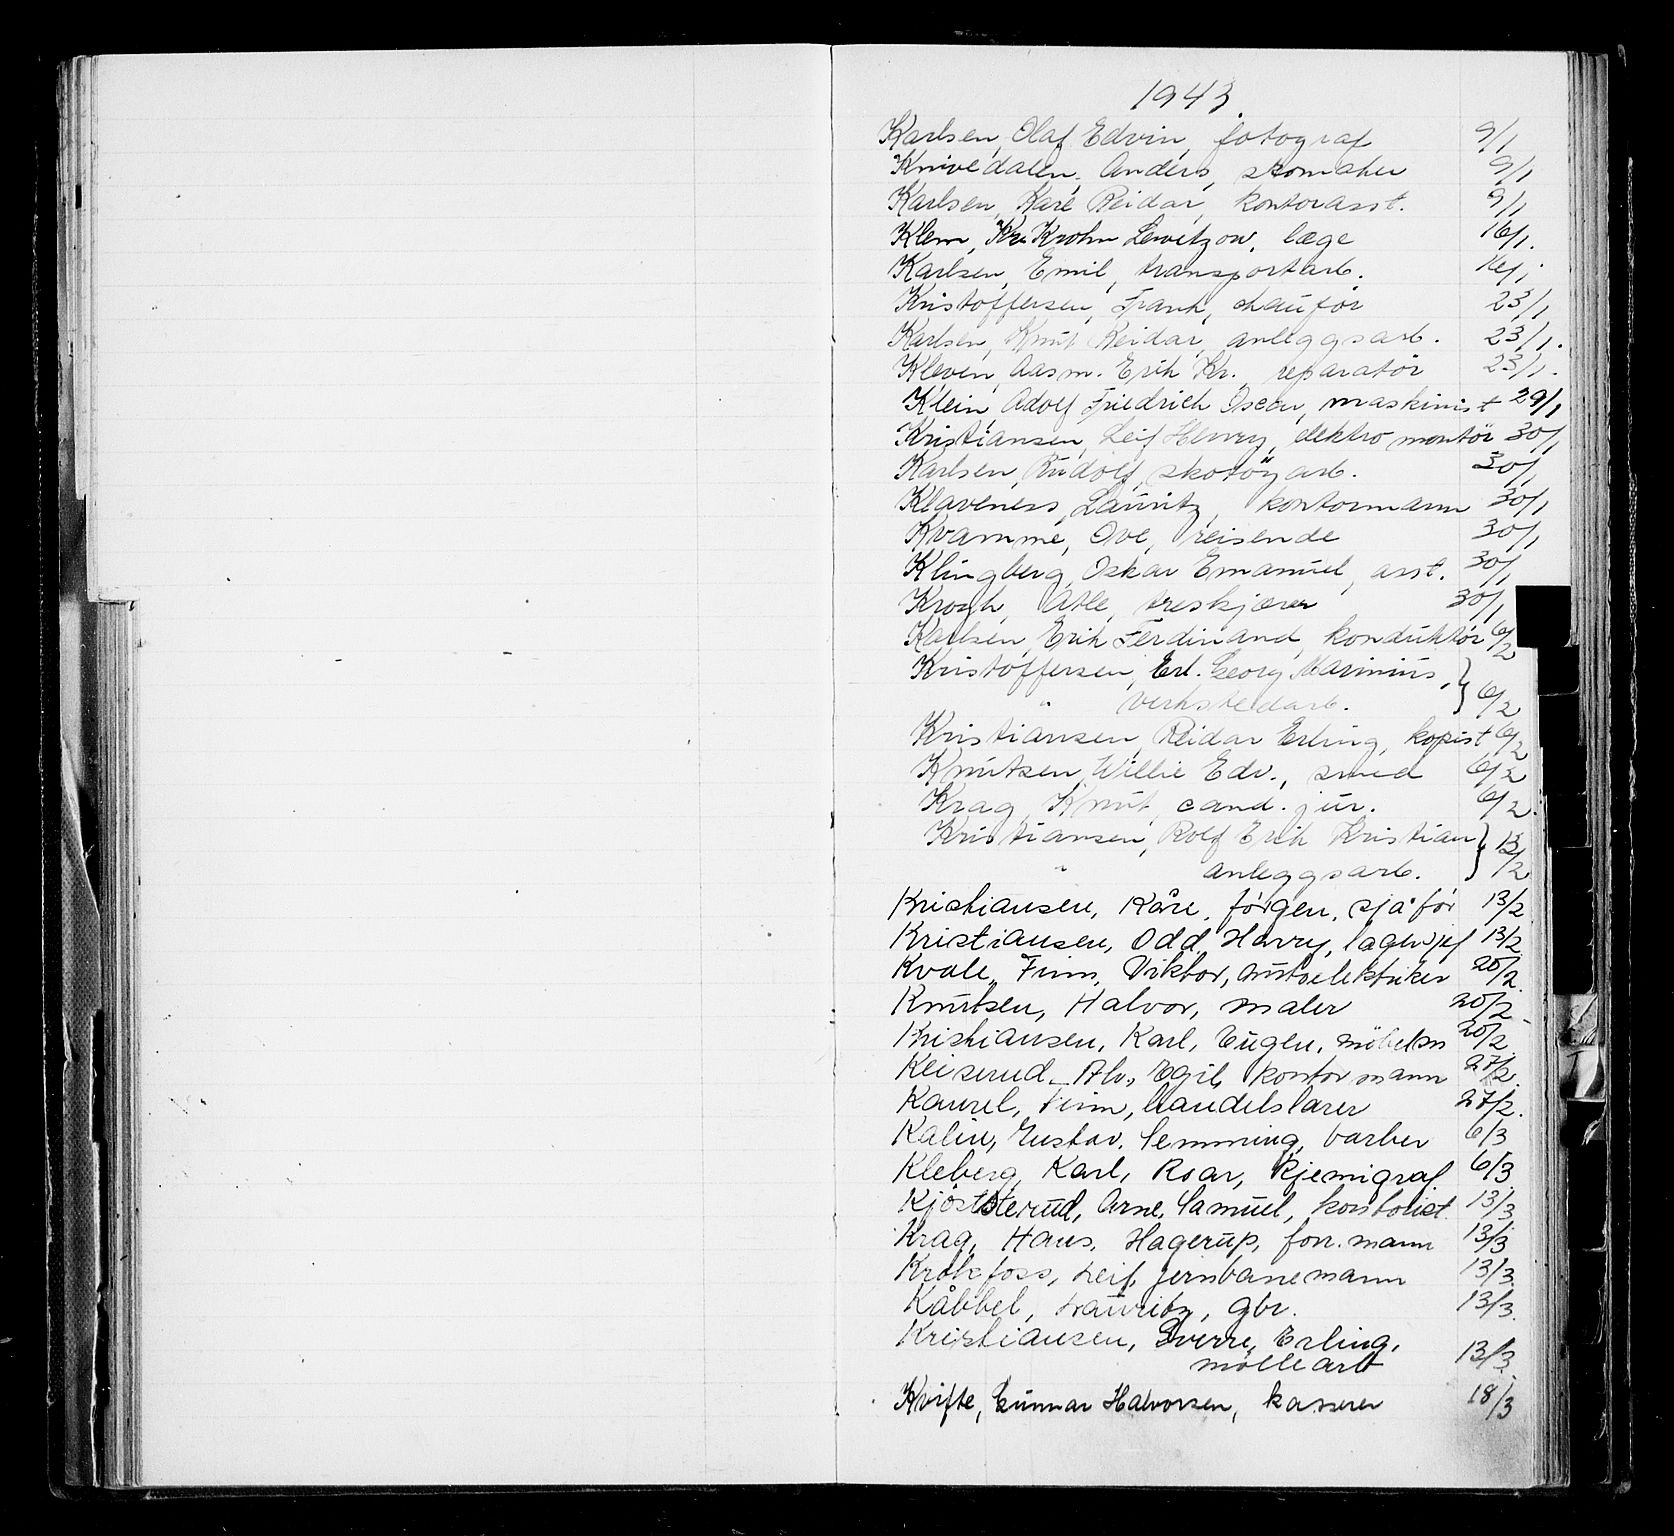 1943.
Karlsen, Olaf Edvin, fotograf 9/1
Knivedalen, Anders, skomaker 9/1
Karlsen, Kåre Reidar, kontorasst. 9/1
Klem, Kr. Krohn Lewetzow, læge 16/1.
Karlsen, Emil, transportarb. 16/1.
Kristoffersen, Frank, chaufør 23/1
Karlsen, Knut Reidar, anleggsarb. 23/1.
Kleven, Aasm. Erik Kr. reparatør 23/1.
Klein, Adolf Friedrich Oscar, maskinist 29/1
Kristiansen, Leif Henry, elektro montör 30/1
Karlsen, Rudolf, skotöyarb. 30/1
Klaveness, Lauritz, kontormann 30/1
Kvamme, Ove, reisende 30/1
Klingberg, Oskar Emanuel, asst. 30/1
Krogh, Atle, treskjærer 30/1
Karlsen, Erik Ferdinand, konduktør 6/2
Kristoffersen, Erl. Georg Marinius,
" verkstedarb. 6/2
Kristiansen, Reidar Erling, kopist 6/2
Knutsen, Willie Edv., smed 6/2
Krag, Knut, cand. jur. 6/2.
Kristiansen, Rolf Erik Kristian
" anleggsarb. 13/2
Kristiansen, Kåre, Jørgen, sjåfør 13/2
Kristiansen, Odd, Harry, lagersjef 13/2
Kvale, Finn, Viktor, autoelektriker 20/2.
Knutsen, Halvor, maler 20/2
Kristiansen, Karl, Eugen, möbelsn 20/2
Keiserud, Alv, Egil, kontormann 27/2.
Kaurel, Finn, handelslærer 27/2.
Kalin, Gustav, Semming, barber 6/3
Kleberg, Karl, Roar, kjemigraf 6/3
Kjöstterud, Arne, Samuel, kontorist 13/3
Krag, Hans, Hagerup, forr.mann 13/3
Krokfoss, Leif, jernbanemann 13/3
Kåbbel, Lauritz, gbr. 13/3.
Kristiansen, Sverre, Erling,
möllearb 13/3
Kvifte, Gunnar Halvorsen, kasserer 18/3